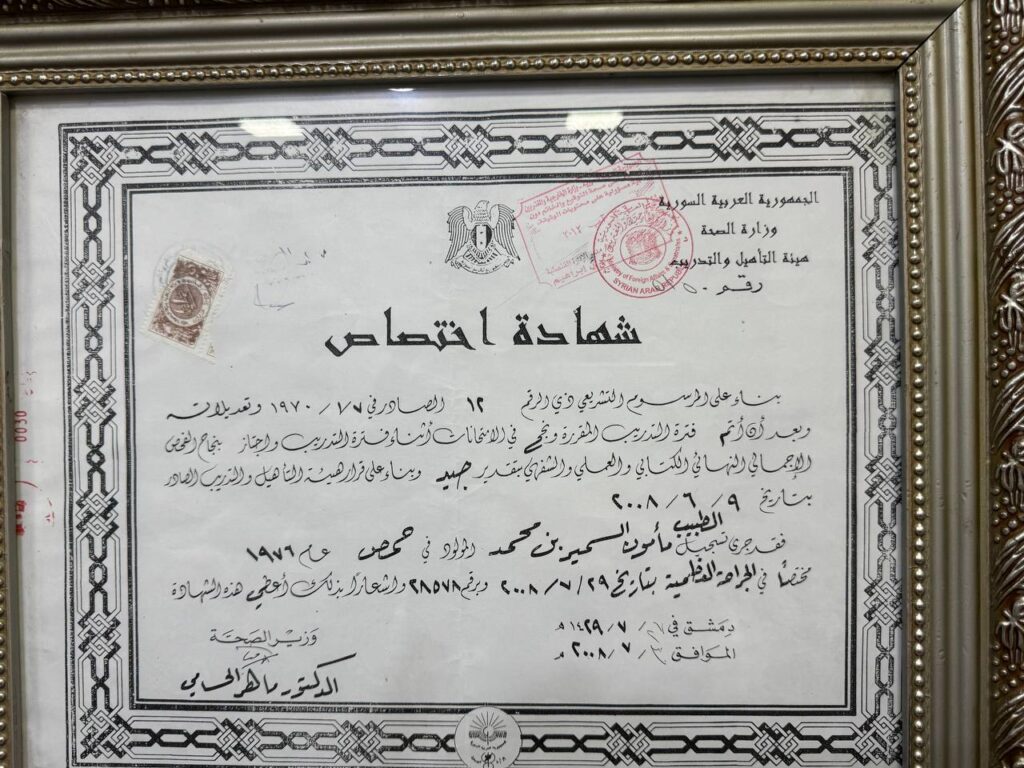 الجمهورية العربية السورية
وزارة الصحة
هيئة التأهيل والتدريب
رقم
وزارة الخارجية والمغتربين
٢٠١٢
Ministry of Foreign Affairs &
SYRIAN ARAB REPUBLIC
شهادة اختصاص
بناء على المرسوم التشريعي ذي الرقم ١٢ الصادر في ١/٧/ ١٩٧٠ وتعديلاته
وبعد أن أتم فترة التدريب المقررة ونجح في الامتحانات أثناء فترة التدريب واجتاز بنجاح الفحص
الإجمالي النهائي الكتابي والعملي والشفهي بتقدير جيد وبناء على قرار هيئة التأهيل والتدريب الصادر
بتاريخ ٩ / ٦ / ٢٠٠٨
فقد جرى تسجيل الطبيب مأمون السمير بن محمد المولود في حمص عام ١٩٧٦
مختصاً في الجراحة العظمية بتاريخ ٢٩/ ٧ / ٢٠٠٨ وبرقم ٢٨٥٧٨ واشعاراً بذلك أعطي هذه الشهادة
دمشق في ٢٧/ ٧ / ١٤٢٩ هـ
الموافق ٣٠/ ٧ / ٢٠٠٨ م
وزير الصحة
الدكتور ماهر الحسامي
0030